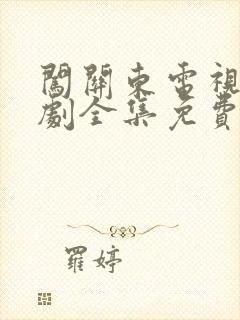 闖關東電視
劇全集免費
羅婷